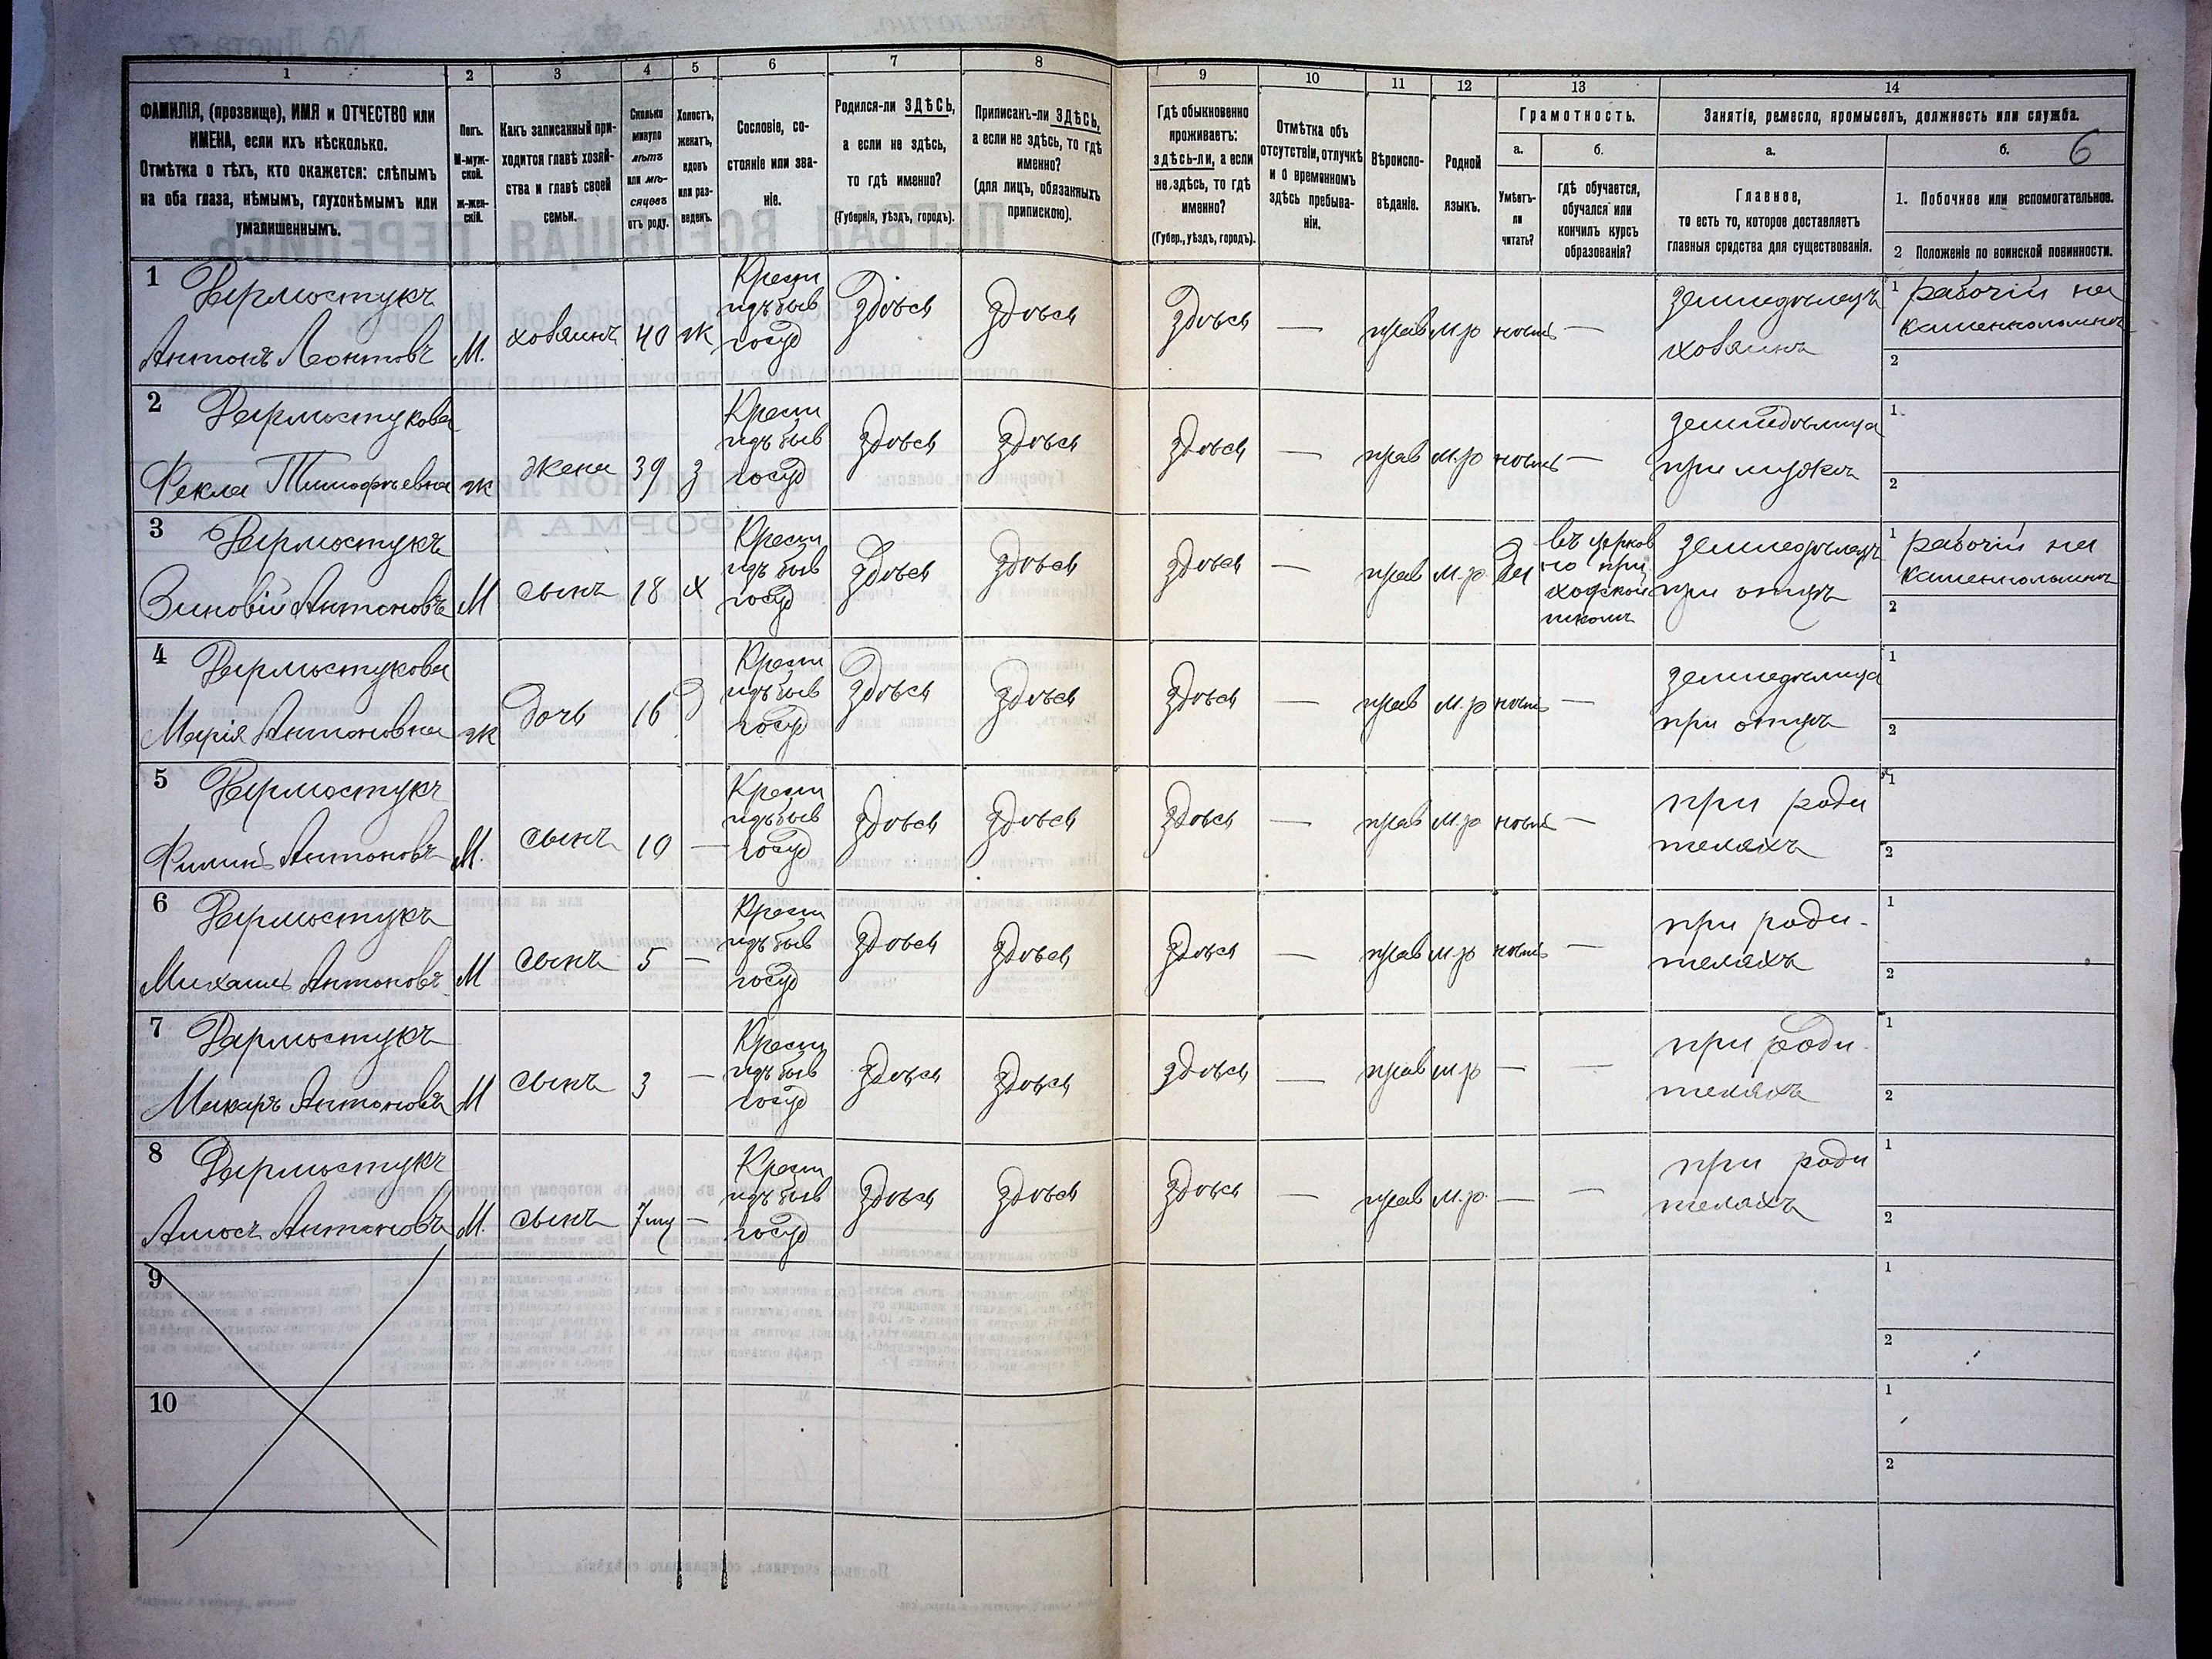 1 2 3 4 5 6 7 8 9 10 11 12 13 14
ФАМИЛІЯ, (прозвище), ИМЯ и ОТЧЕСТВО или
ИМЕНА, если ихъ нѣсколько.
Отмѣтка о тѣхъ, кто окажется: слѣпымъ
на оба глаза, нѣмымъ, глухонѣмымъ или
умалишеннымъ.
Полъ.
М-муж-
ской.
ж-жен-
скій.
Какъ записанный при-
ходится главѣ хозяй-
ства и главѣ своей
семьи.
Сколько
минуло
лѣтъ
или мѣ-
сяцевъ
отъ роду.
Холостъ,
женатъ,
вдовъ
или раз-
веденъ.
Сословіе, со-
стояніе или зва-
ніе.
Родился-ли ЗДѢСЬ,
а если не здѣсь,
то гдѣ именно?
(Губернія, уѣздъ, городъ).
Приписанъ-ли ЗДѢСЬ,
а если не здѣсь, то гдѣ
именно?
(для лицъ, обязанныхъ
припискою).
Гдѣ обыкновенно
проживаетъ:
здѣсь-ли, а если
не здѣсь, то гдѣ
именно?
(Губер., уѣздъ, городъ).
Отмѣтка объ
отсутствіи, отлучкѣ
и о временномъ
здѣсь пребыва-
ніи.
Вѣроиспо-
вѣданіе.
Родной
языкъ.
Грамотность.
а.
Умѣетъ-
ли
читать?
б.
гдѣ обучается,
обучался или
кончилъ курсъ
образованія?
Занятіе, ремесло, промыселъ, должность или служба.
а.
Главное,
то есть то, которое доставляетъ
главныя средства для существованія.
б. 6
1. Побочное или вспомогательное.
2 Положеніе по воинской повинности.
1 Дермостукъ
Антонъ Леонтовъ
М.
хозяинъ
40
ж
Крести
изъ быв
госуд
Здѣсь
Здѣсь
Здѣсь
—
прав
м.р
нѣтъ
—
земледѣлецъ
хозяинъ
1 рабочій на
каменоломнѣ
2
2 Дермостукова
Фекла Тимофѣевна
ж
жена
39
з
Крести
изъ быв
госуд
здѣсь
здѣсь
здѣсь
—
прав
м.р
нѣтъ
—
земледѣлица
при мужѣ
1
2
3 Дермостукъ
Зиновій Антоновъ
М
сынъ
18
х
Крести
изъ быв
госуд
Здѣсь
здѣсь
здѣсь
—
прав
м.р.
да
въ церков
но при
ходской
школѣ
земледѣлецъ
при отцѣ
1 рабочій на
каменоломнѣ
2
4 Дермостукова
Марія Антоновна
ж
дочь
16
д
Крести
изъ быв
госуд
Здѣсь
здѣсь
здѣсь
—
прав
м.р
нѣтъ
—
земледѣлица
при отцѣ
1
2
5 Дермостукъ
Филипъ Антоновъ
М.
сынъ
10
—
Крести
изъ быв
госуд
здѣсь
здѣсь
здѣсь
—
прав
м.р
нѣтъ
—
при роди
теляхъ
1
2
6 Дермостукъ
Михаилъ Антоновъ
М
сынъ
5
—
Крести
изъ быв
госуд
здѣсь
здѣсь
здѣсь
—
прав
м.р
нѣтъ
—
при роди-
теляхъ
1
2
7 Дермостукъ
Макаръ Антоновъ
М
сынъ
3
—
Крести
изъ быв
госуд
здѣсь
здѣсь
здѣсь
—
прав
м.р
—
—
при роди-
теляхъ
1
2
8 Дермостукъ
Амосъ Антоновъ
М.
сынъ
—
Крести
изъ быв
госуд
здѣсь
здѣсь
здѣсь
—
прав
м.р.
—
—
при роди
теляхъ
1
2
9
1
2
10
1
2